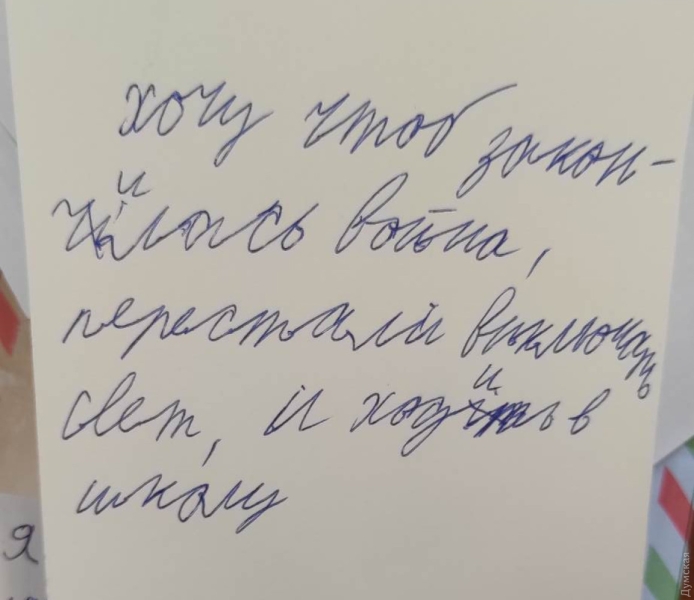 хочу чтоб закон-
чилась война,
перестали виключать
свет, и ходить в
школу
Я
Думская